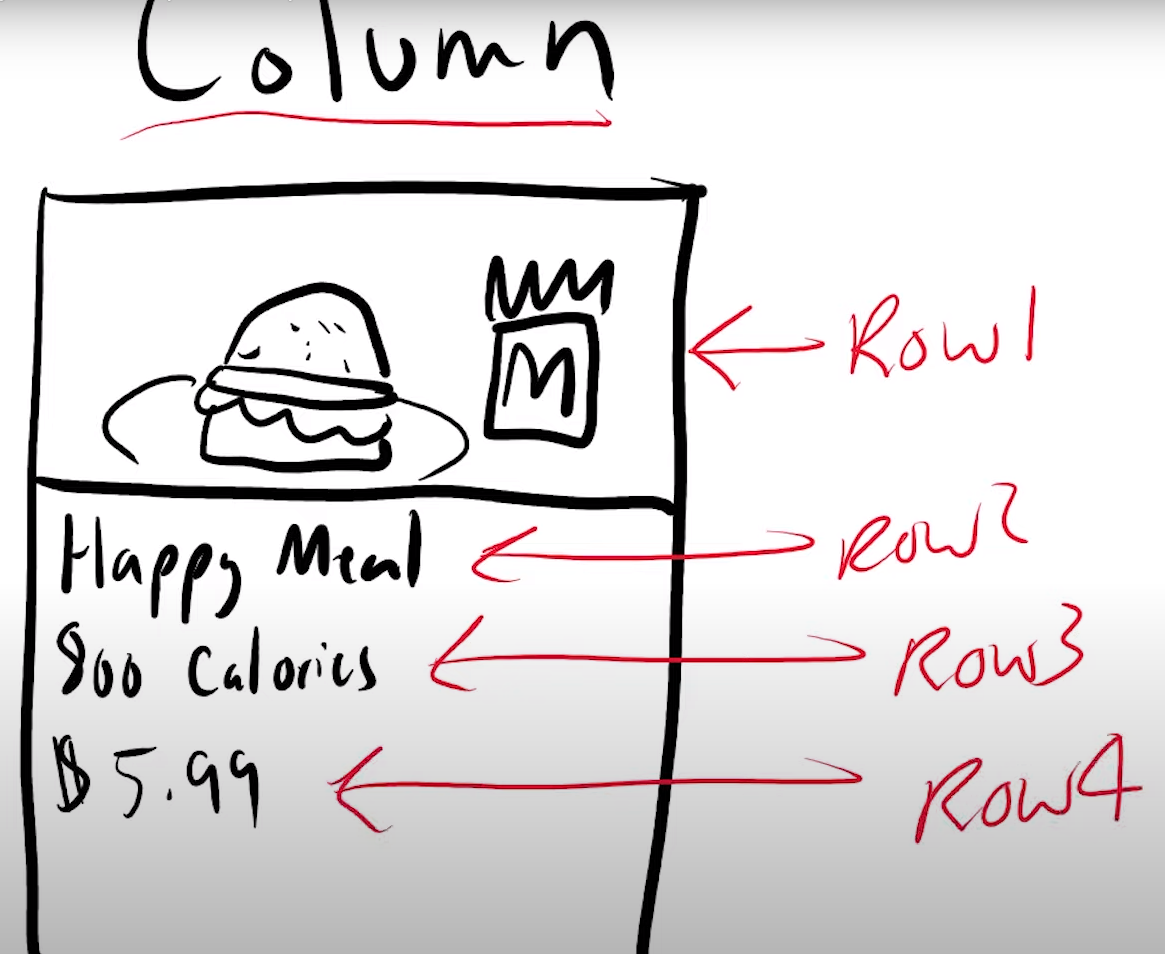 Column
M
Row1
Happy Meal
Row2
800 Calories
Row3
$5.99
Row4